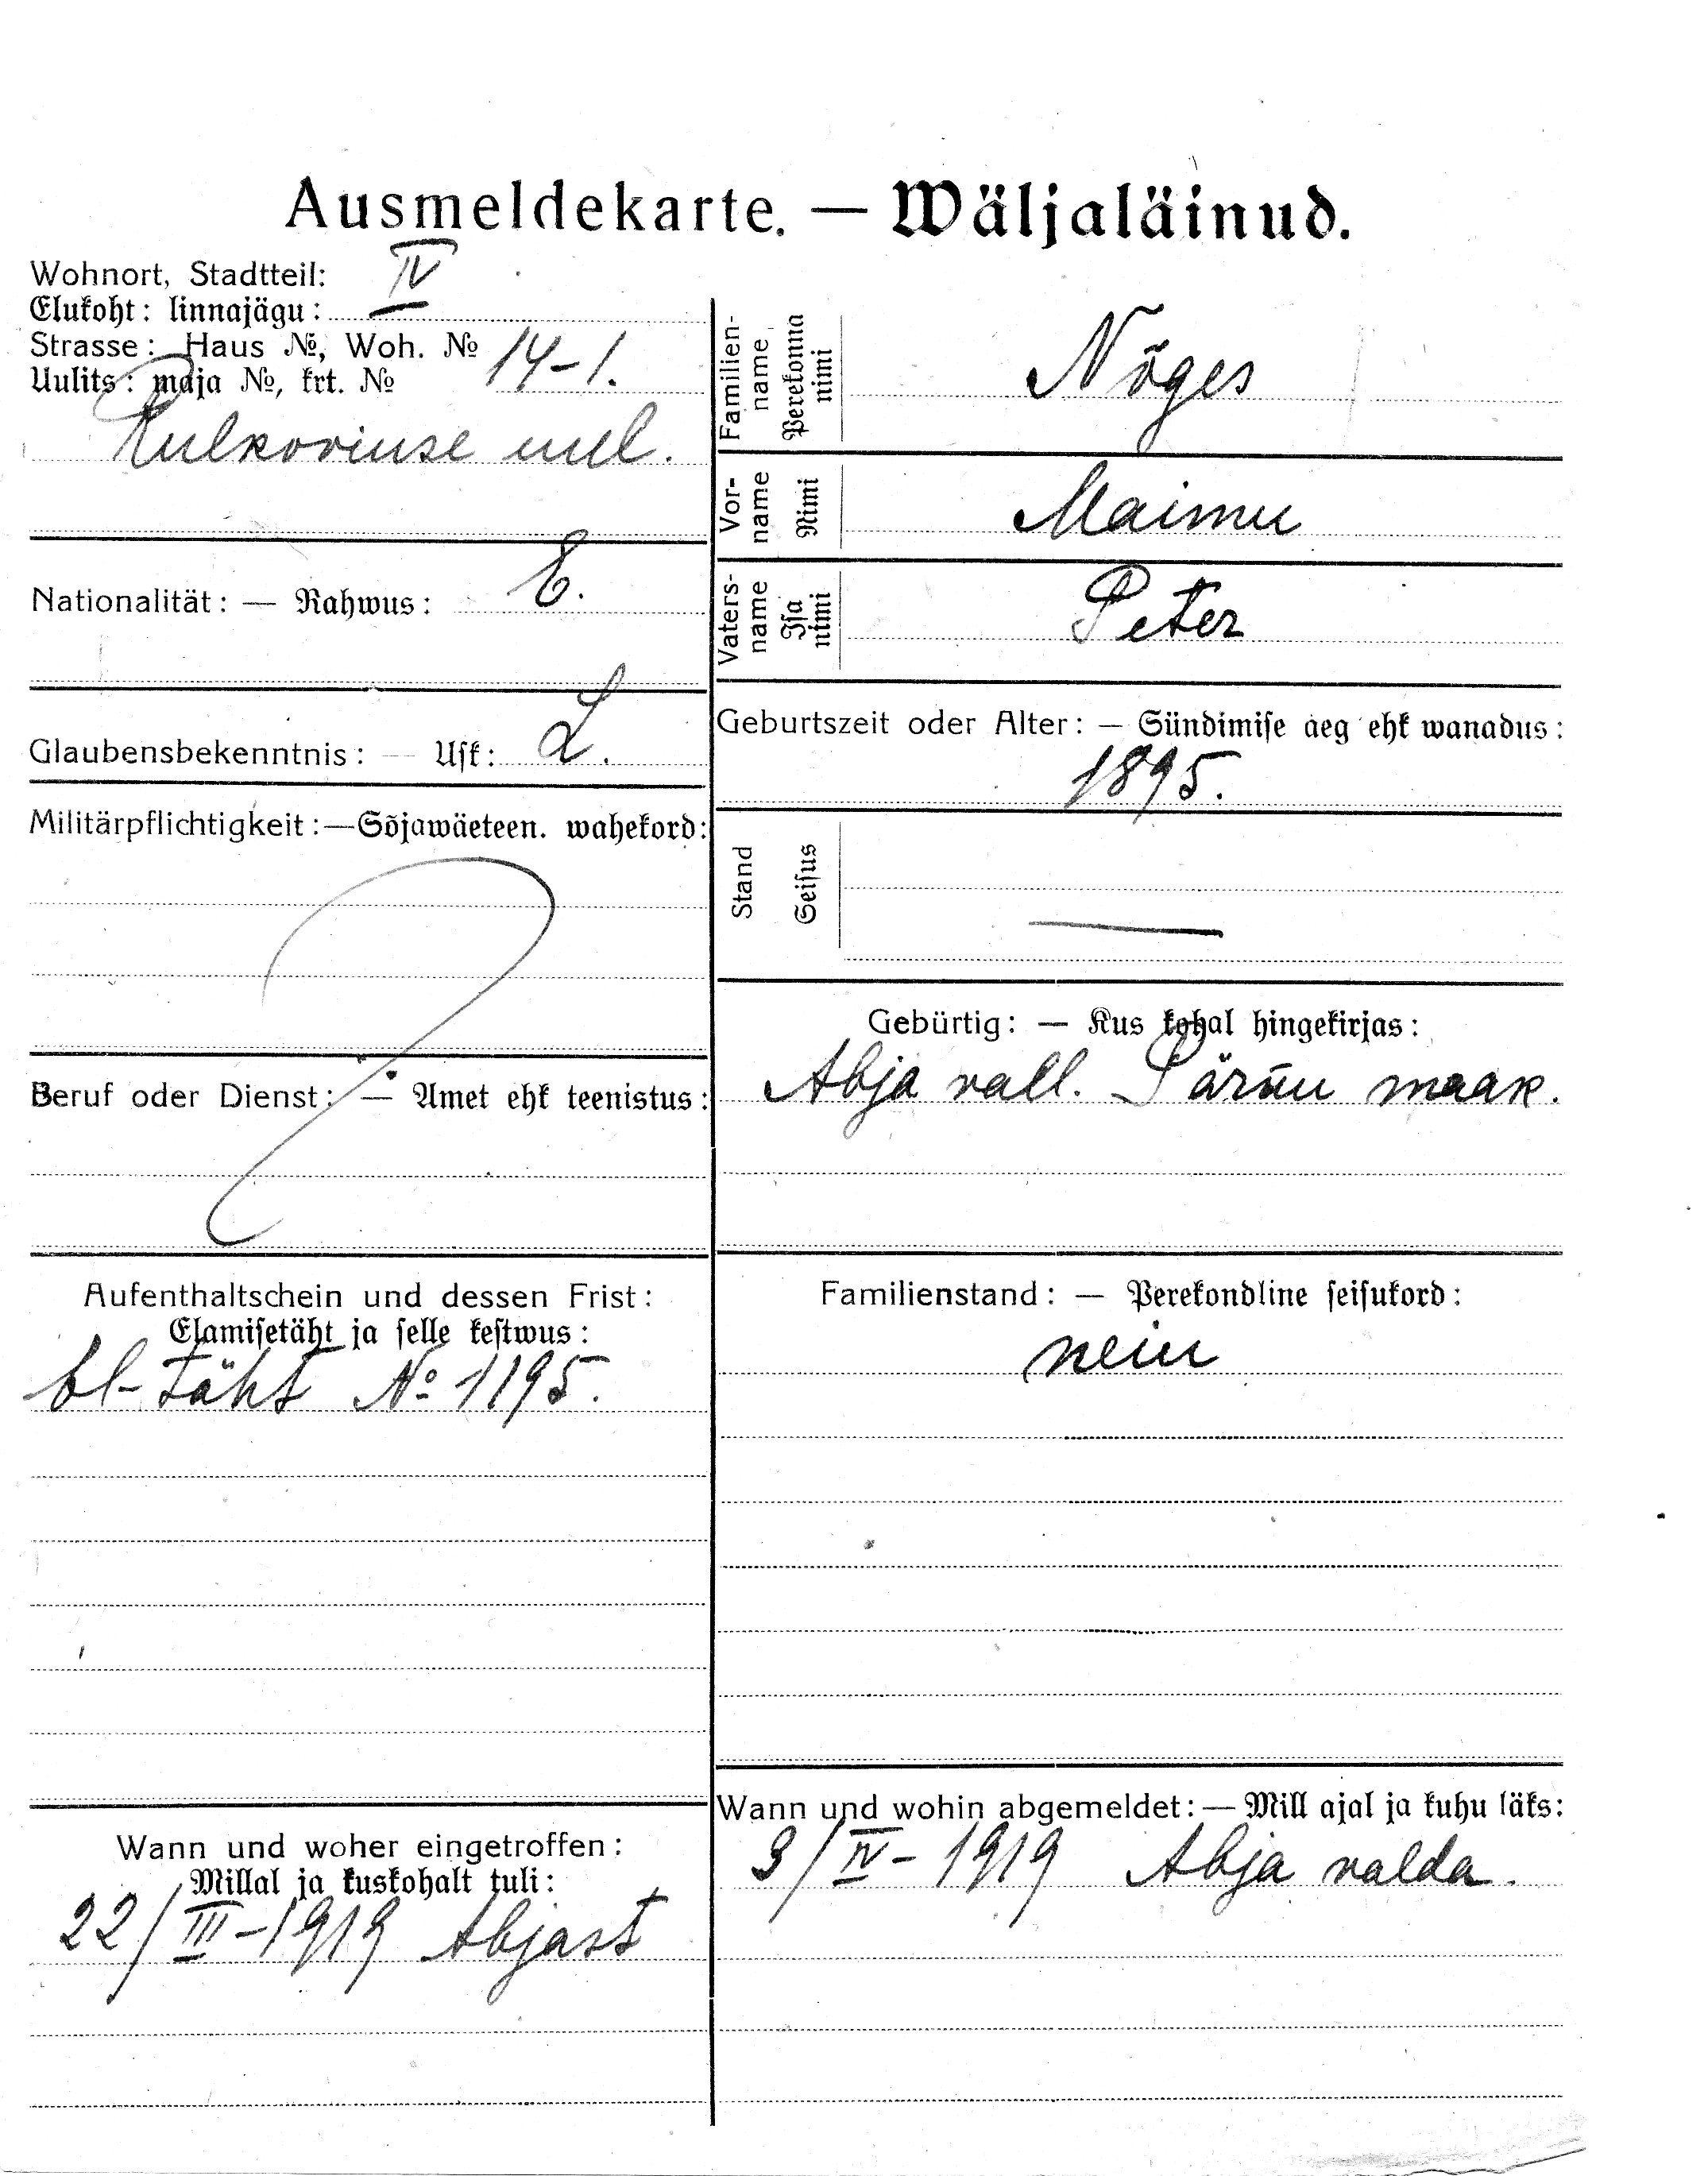 Ausmeldekarte. — Wäljaläinud.
Wohnort, Stadtteil:
Elukoht: linnajägu: IV
Strasse: Haus №, Woh. №
Uulits: maja №, krt. № 14-1.
uul.
Nationalität: — Rahwus: E.
Glaubensbekenntnis: — Usk: L.
Militärpflichtigkeit:—Sõjawäeteen. wahekord:
Beruf oder Dienst: — Amet ehk teenistus:
Aufenthaltschein und dessen Frist:
Elamisetäht ja selle kestwus:
El-täht № 1195.
Wann und woher eingetroffen:
Millal ja kuskohalt tuli:
22/III-1919 Abjast
Familien-
name
Perekonna
nimi
Nõges
Vor-
name
Nimi
Maimu
Vaters-
name
Isa
nimi
Peter
Geburtszeit oder Alter: — Sündimise aeg ehk wanadus:
1895.
Stand
Seisus
—
Gebürtig: — Kus kohal hingekirjas:
Abja vall. Pärnu maak.
Familienstand: — Perekondline seisukord:
neiu
Wann und wohin abgemeldet:— Mill ajal ja kuhu läks:
3/IV-1919 Abja valda.